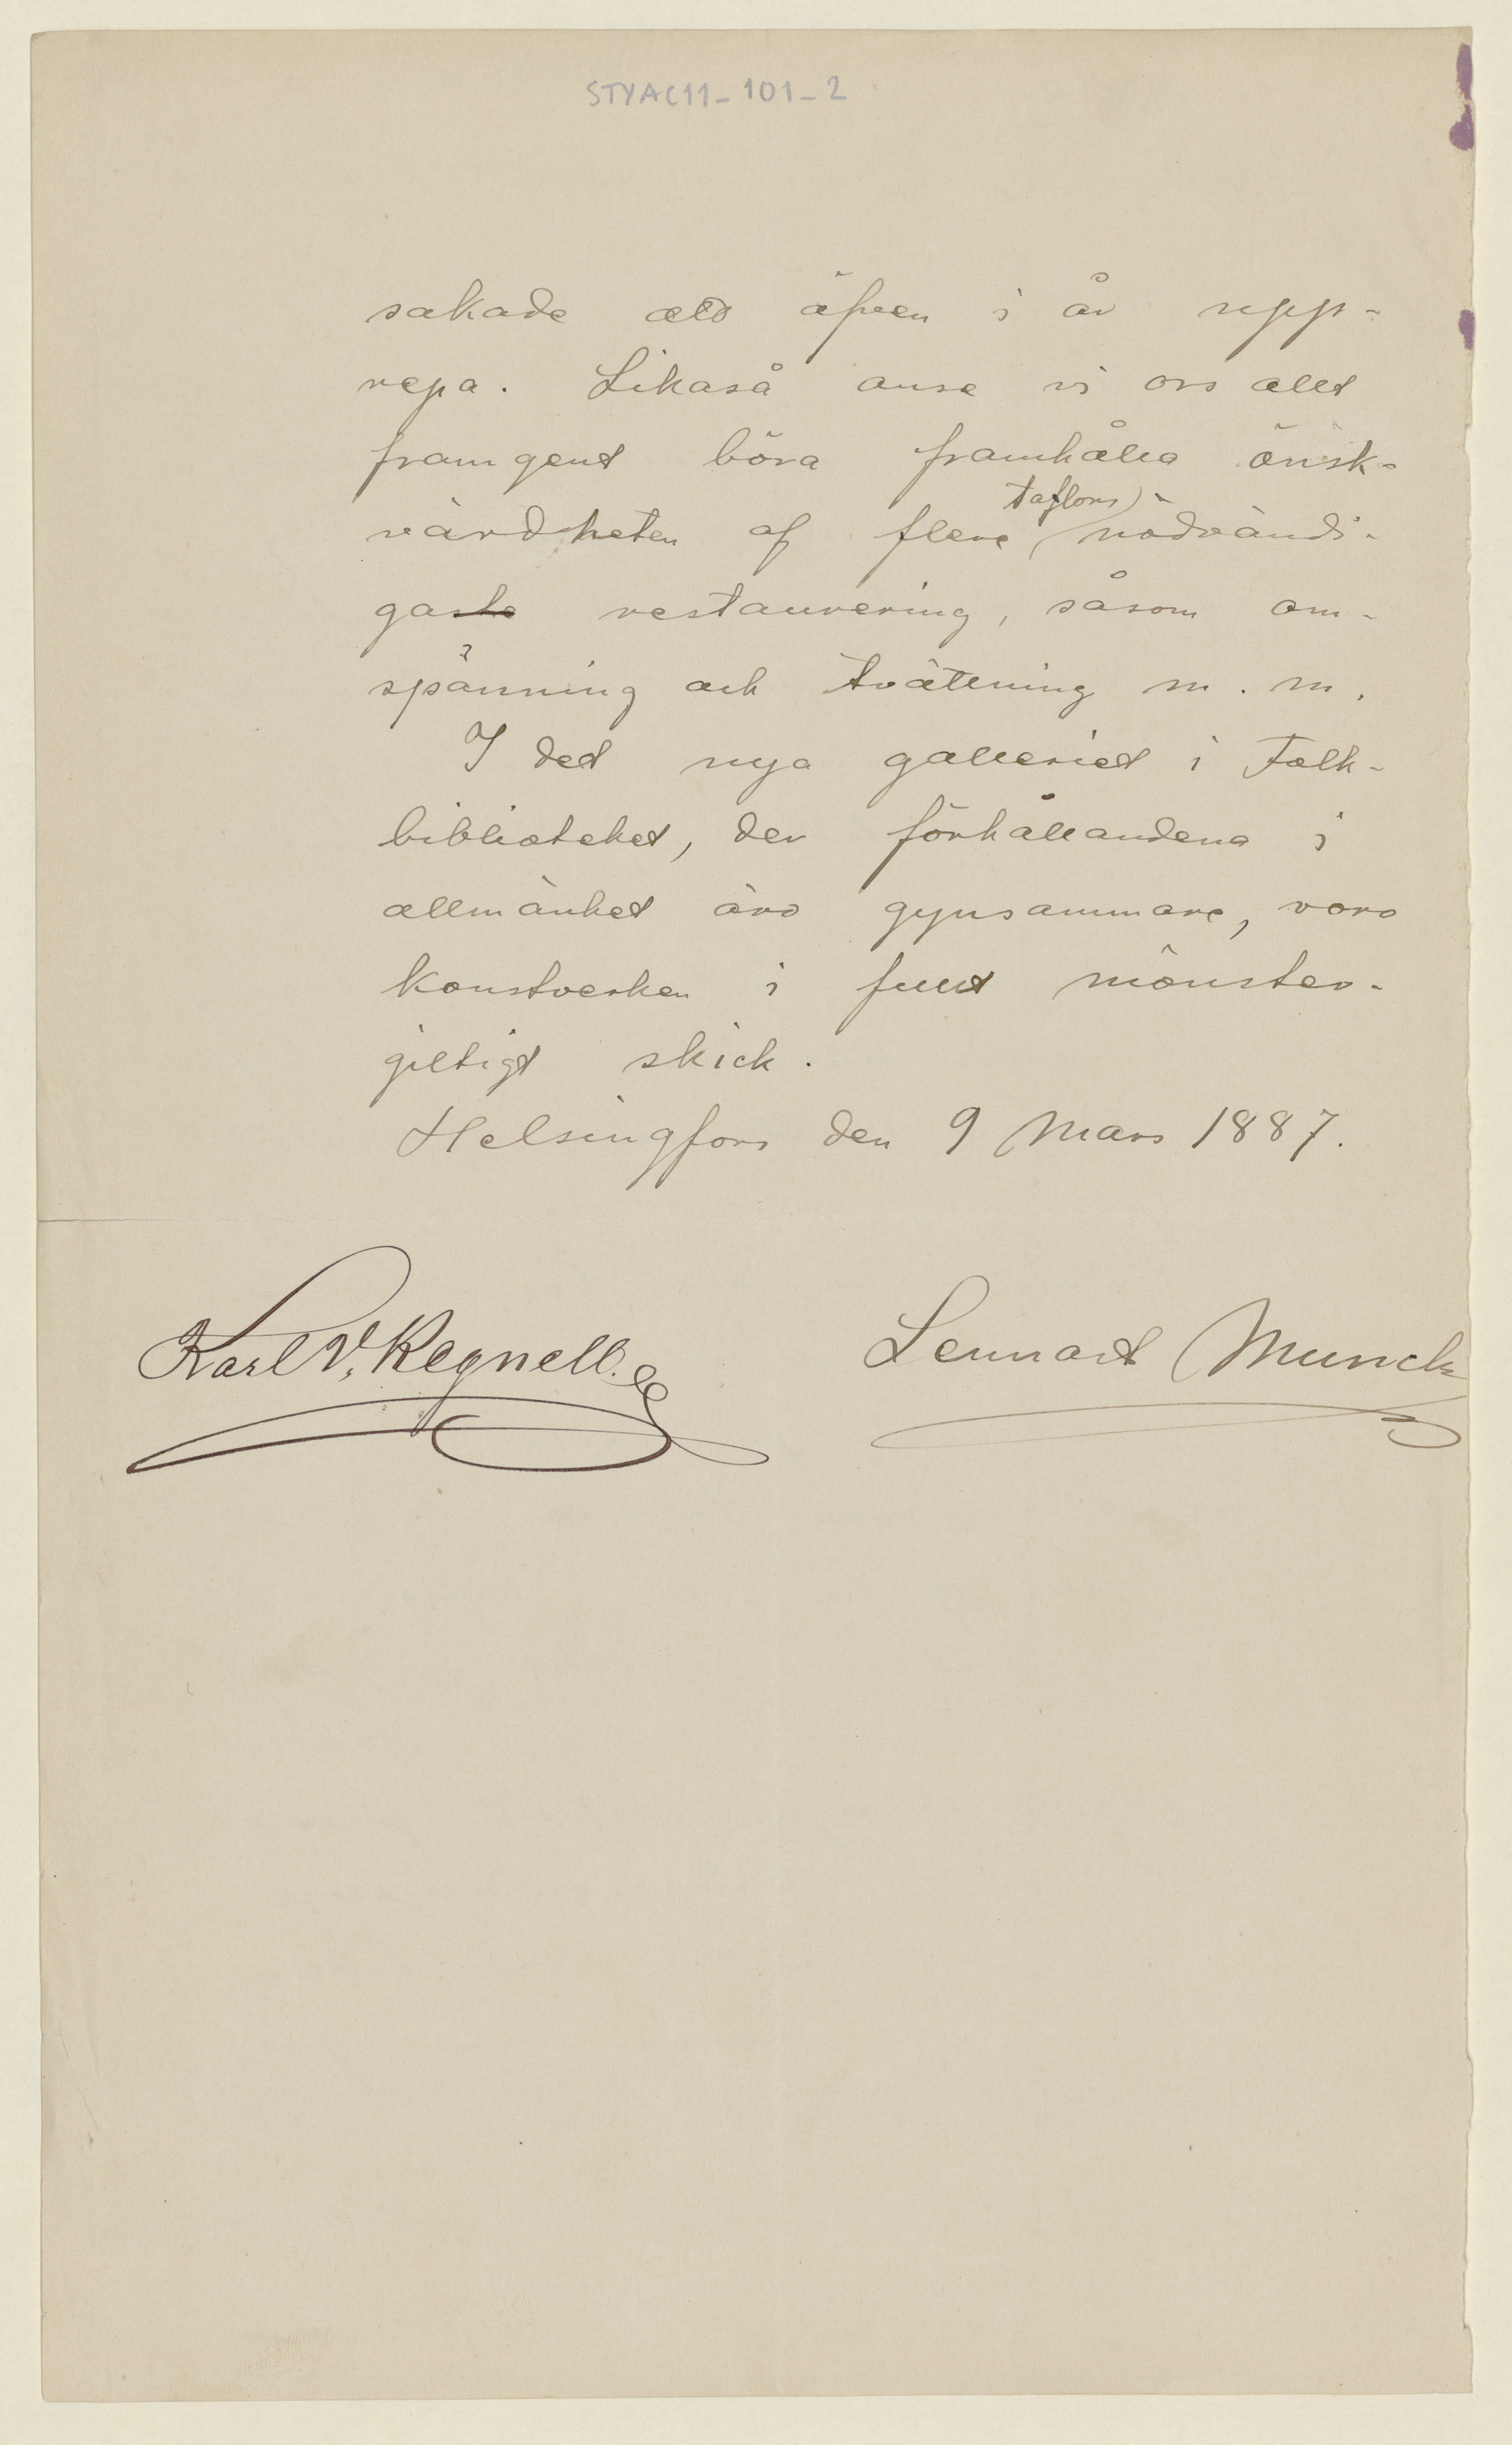 STYAC11-101-2
sakade att äfven i år upp-
repa. Likaså anse vi oss allt
framgent böra framhålla önsk-
taflors
värdheten af flere nödvändi-
gaste restaurering, såsom om-
spänning och tvättning m. m.
I det nya galleriet i Folk-
biblioteket, der förhållandena i
allmänhet äro gynsammare, voro
konstverken i fullt mönster-
giltigt skick.
Helsingfors den 9 Mars 1887.
Karl V. Regnell.
Lennart Munck